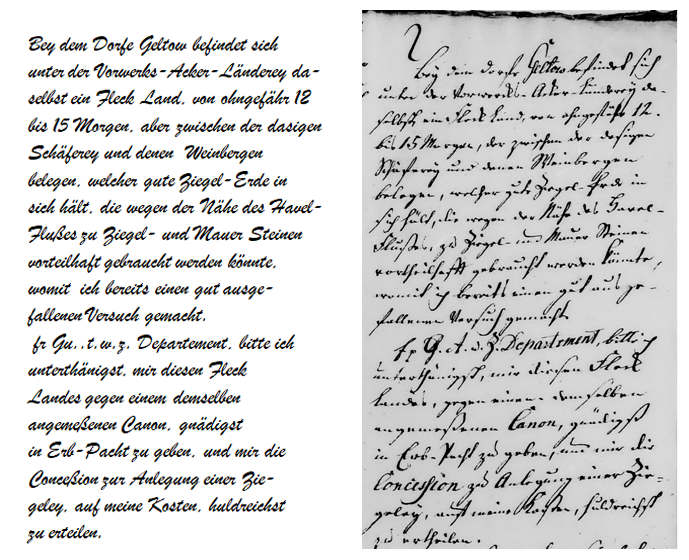 Bey dem Dorfe Geltow befindet sich
unter der Vorwerks-Acker-Länderey da-
selbst ein Fleck Land, von ohngefähr 12
bis 15 Morgen, aber zwischen der dasigen
Schäferey und denen Weinbergen
belegen, welcher gute Ziegel-Erde in
sich hält, die wegen der Nähe des Havel-
Flußes zu Ziegel- und Mauer Steinen
vorteilhaft gebraucht werden könnte,
womit ich bereits einen gut ausge-
fallenen Versuch gemacht.
fr Gu..t.w.z. Departement, bitte ich
unterthänigst, mir diesen Fleck
Landes gegen einem demselben
angemeßenen Canon, gnädigst
in Erb-Pacht zu geben, und mir die
Conceßion zur Anlegung einer Zie-
geley, auf meine Kosten, huldreichst
zu erteilen.
Bey dem Dorfe Geltow befindet sich
unter der Vorwerks-Acker-Länderey da-
selbst ein Fleck Land, von ohngefähr 12.
bis 15 Morgen, der zwischen der dasigen
Schäferey und denen Weinbergen
belegen, welcher gute Ziegel-Erde in
sich hält, die wegen der Nähe des Havel-
Flußes, zu Ziegel- und Mauer Steinen
vortheilhafft gebraucht werden könnte,
womit ich bereits einen gut aus ge-
fallenen Versuch gemacht.
Departement, bitte ich
unterthänigst, mir diesen Fleck
Landes, gegen einen demselben
angemeßenen Canon, gnädigst
in Erb-Pacht zu geben, und mir die
Concession zu Anlegung einer Zie-
geley, auf meine Kosten, huldreichst
zu ertheilen.